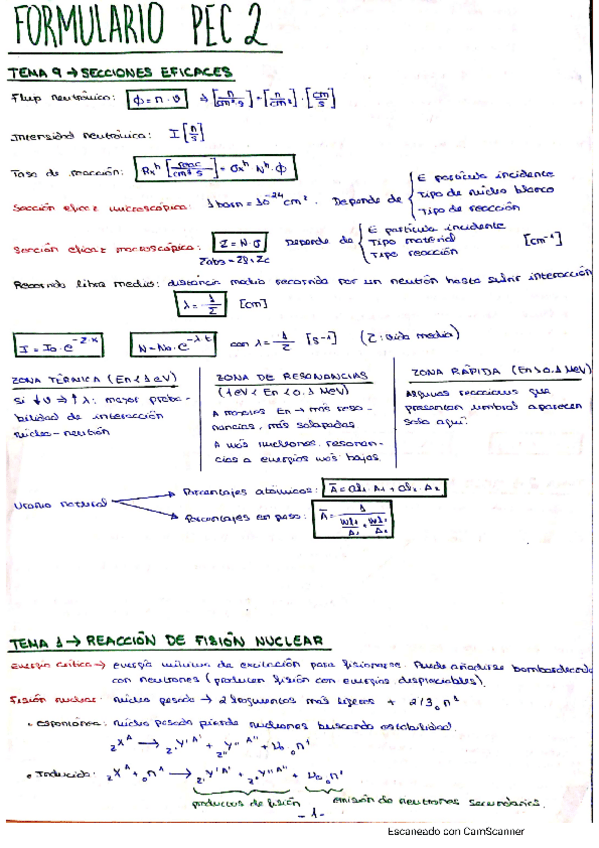 FORMULARIO PEC 2
TEMA 9 → SECCIONES EFICACES
Flujo neutrónico: ϕ = n · v → [n/cm²·s] = [n/cm³] · [cm/s]
Intensidad neutrónica: I [n/s]
Tasa de reacción: Rxⁿ [reac/cm³ s] = σxⁿ Nⁿ · ϕ
Sección eficaz microscópica: 1 barn = 10⁻²⁴ cm². Depende de { E partícula incidente
Tipo de núcleo blanco
Tipo de reacción
Sección eficaz macroscópica: Σ = N · σ Depende de { E partícula incidente
Tipo material [cm⁻¹]
Tipo reacción
Σabs = Σf + Σc
Recorrido libre medio: distancia media recorrida por un neutrón hasta sufrir interacción
λ = 1/Σ [cm]
I = I₀ · e^(-Σ·x) N = N₀ · e^(-λ t) con λ = 1/Z [s⁻¹] (Z: vida media)
ZONA TÉRMICA (En < 1 eV)
Si ↓ v ⇒ ↑ λ: mayor proba-
bilidad de interacción
núcleo-neutrón
ZONA DE RESONANCIAS
(1 eV < En < 0.1 MeV)
A mayores En → más reso-
nancias, más solapadas
A más nucleones, resonan-
cias a energías más bajas.
ZONA RÁPIDA (En > 0.1 MeV)
Algunas reacciones que
presentan umbral aparecen
solo aquí.
Uranio natural
Porcentajes atómicos: Ā = a₁ · A₁ + a₂ · A₂
Porcentajes en peso: Ā = 1/(w₁/A₁ + w₂/A₂)
TEMA 1 → REACCIÓN DE FISIÓN NUCLEAR
Energía crítica → energía mínima de excitación para fisionarse. Puede añadirse bombardeando
con neutrones (producen fisión con energías despreciables).
Fisión nuclear: núcleo pesado → 2 fragmentos más ligeros + 2/3 ₀n¹
• espontánea: núcleo pesado pierde nucleones buscando estabilidad.
zXᴬ → z'Y'ᴬ' + z''Y''ᴬ'' + ν₀ ₀n¹
• Inducida: zXᴬ + ₀n¹ → z'Y'ᴬ' + z''Y''ᴬ'' + ν₀ ₀n¹
productos de fisión emisión de neutrones secundarios.
- 1 -
Escaneado con CamScanner